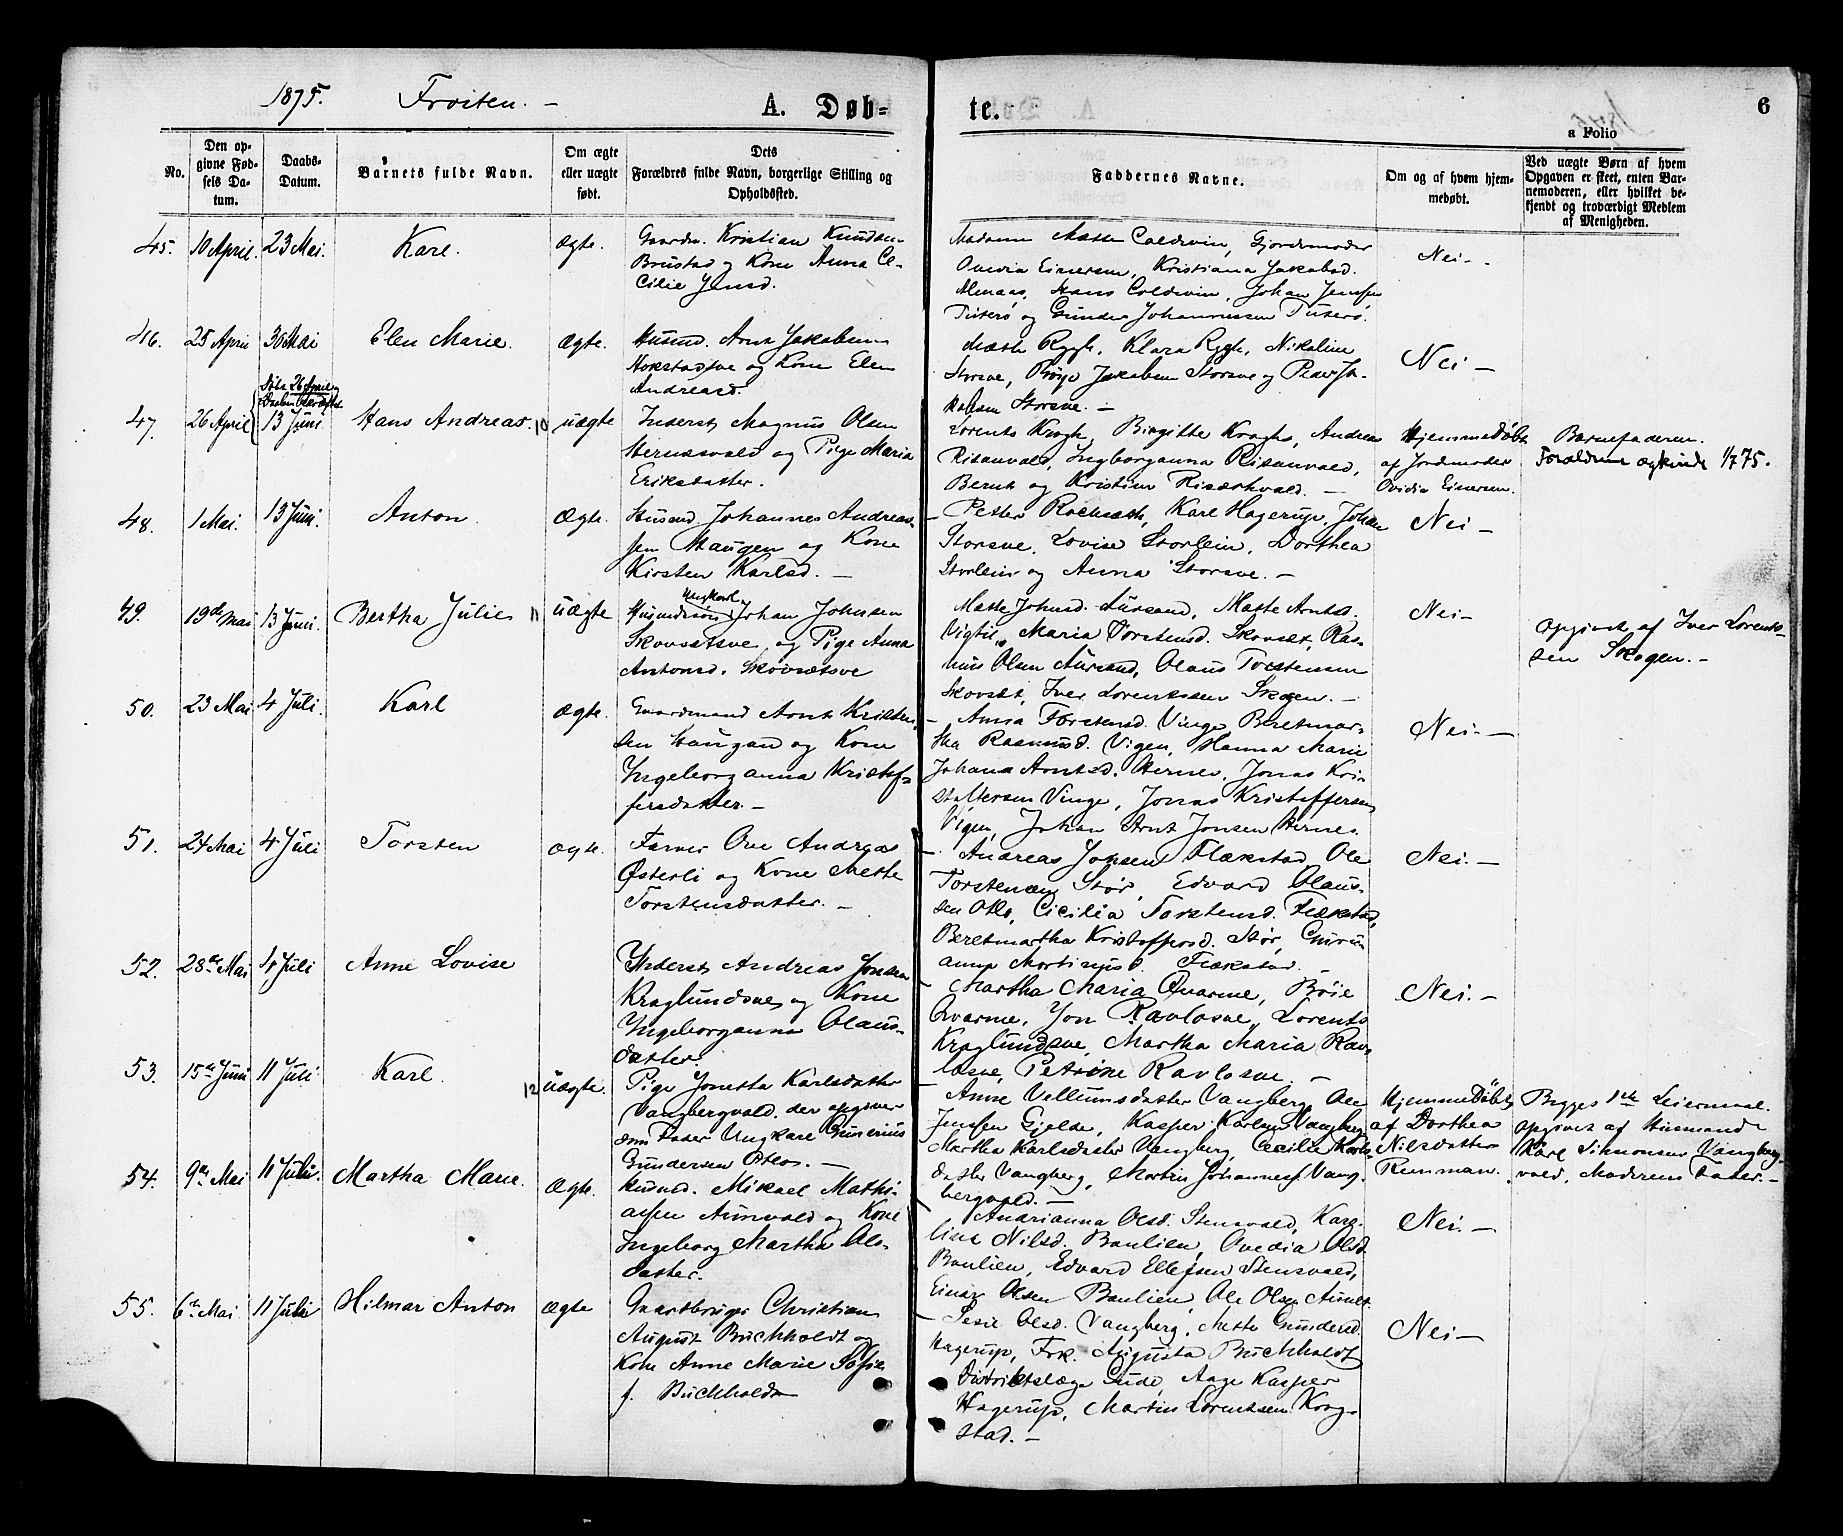 1875. Frosten. –
A. Døb= te.
6
a Folio
No.
Den op-
givne Fød-
sels Da-
tum.
Daabs-
Datum.
Barnets fulde Navn.
Om ægte
eller uægte
født.
Dets
Forældres fulde Navn, borgerlige Stilling og
Opholdssted.
Faddernes Navne.
Om og af hvem hjem-
medøbt.
Ved uægte Børn af hvem
Opgaven er skeet, enten Bar-
nemoderen, eller hvilket be-
kjendt og troværdigt Medlem
af Menigheden.
45. 10 April. 23 Mai. Karl. Ægte.
Gaardm. Kristian Knudsen
Brustad og Kone Anna Ce-
cilie Jensd.
Madame Mette Coldevin, Gjordemoder
Ovedia Einersen, Kristiana Jakobsd.
Hans Coldevin, Johan Jensen
Tuterø og Gunder Johannessen Tuterø.
Nei –
46. 25 April 30 Mai Elen Marie. Ægte.
Husmd. Arnt Jakobsen
Hokstadsve og Kone Elen
Andreasd.
Mette Rygh, Klara Rygh, Nikoline
Storsve, Jakobsen Storsve og Peder Ja-
kobsen Storsve. –
Nei –
47. 26 April 13 Juni Hans Andreas. 10 uægte
Inderst Magnus Olsen
og Pige Maria
Eriksdatter.
Lorents Krogh, Birgitte Krogh, Andreas
Risanvald, Ingeborganna Risanvald,
Bernt og Kristine –
Hjemmedøbt
af Jordmoder
Ovidia Einersen.
Barnefaderen.
Forældrene 1/7 75.
48. 1 Mai. 13 Juni. Anton. Ægte.
Husmd. Johannes Andreas-
sen Haugen og Kone
Kirsten Karlsd. –
– Petter Karl Hagerup, Johan
Storsve, Lovise Storlein, Dorthea
Storlein og Anna Storsve. –
Nei –
49. 19de Mai 13 Juni. Bertha Julie 11 uægte
Ungkarl
Husmdssøn Johan Johnsen
Skovsetsve og Pige Anna
Antonsd. Skovsætsve
Mette Johnsd. Aursand, Mette Arntsd.
Vigtil, Maria Torstensd. Skovset, Ras-
mus Olsen Aursand, Olaus Torstensen
Skovset, Iver Lorentssen Skogen. –
Nei –
opgivet af Iver Lorents-
sen Skogen. –
50. 23 Mai 4 Juli. Karl Ægte.
Gaardmand Arnt Kristen-
sen Haugan og Kone
Ingeborganna Kristof-
fersdatter. –
– Anna Torstensd. Vinge Beretmar-
tha Rasmusd. Vigen, Hanna Marie
Johana Arntsd. Hernes, Jonas Kri-
stoffersen Vinge, Jonas Kristoffersen
Vigen, Johan Arnt Jonsen Hernes.
Nei. –
51. 24 Mai 4 Juli Torsten Ægte.
Farver Ole Andreas
Østerli og Kone Mette
Torstensdatter. –
– Andreas Jonsen Flækstad, Ole
Torstensen Stør, Edvard Olaus-
sen Otlo, Cicilia Torstensd. Flækstad,
Beretmartha Kristoffersd. Stør, Guru
anna Mortinusd. Flækstad. –
Nei. –
52. 28de Mai 4 Juli Anne Lovise
Inderst Andreas Jonsen
Kraglundsve og Kone
Ingeborganna Olaus-
datter.
– Martha Maria Qvarme, Bøie
Qvarme, Jon Ravlosve, Lorents
Kraglundsve, Martha Maria Rav-
losve, Petrine Ravlosve. –
Nei. –
53. 15de Juni 11 Juli Karl. 12 uægte.
Pige Jonetta Karlsdatter
Vangbergvald, der opgiver
som Fader Ungkarl Gunerius
Gundersen Otlos. –
– Anne Vellumsdatter Vangberg, Ole
Jenssen Gjelde, Kasper Karlsen Vangberg
Martha Karlsdatter Vangberg, Cecilie Karls-
datter Vangberg, Martin Johannesf. Vang-
bergvald. –
Hjemmedøbt
af Dorthea
Nilsdatter
Renman.
Begges 1ste Leiermaal.
opgivet af Husmand
Karl Simonsen Vangberg-
vald, Moderens Fader. –
54. 9de Mai 11 Juli. Martha Marie. Ægte.
Husmd. Mikael Mathi-
assen Aunvald og Kone
Ingeborg Martha Ols-
datter.
– Andrianna Olsd. Stensvald, Karo-
line Nilsd. Baulien, Ovedia Olsd.
Baulien, Edvard Ellefsen Stensvald,
Einar Olsen Baulien, Ole Olsen
Nei. –
55. 6te Mai 11 Juli Hilmar Anton Ægte
Gaardbruger Christian
August Buchholdt og
Kone Anne Marie Sofie
f. Buchholdt
– Olsd. Vangberg, Mette Gundersd.
Hagerup, Frk. Augusta Buchholdt
Distriktslæge Gude, Aage Kasper
Hagerup, Martin Lorentsen Krog-
stad. –
Nei –